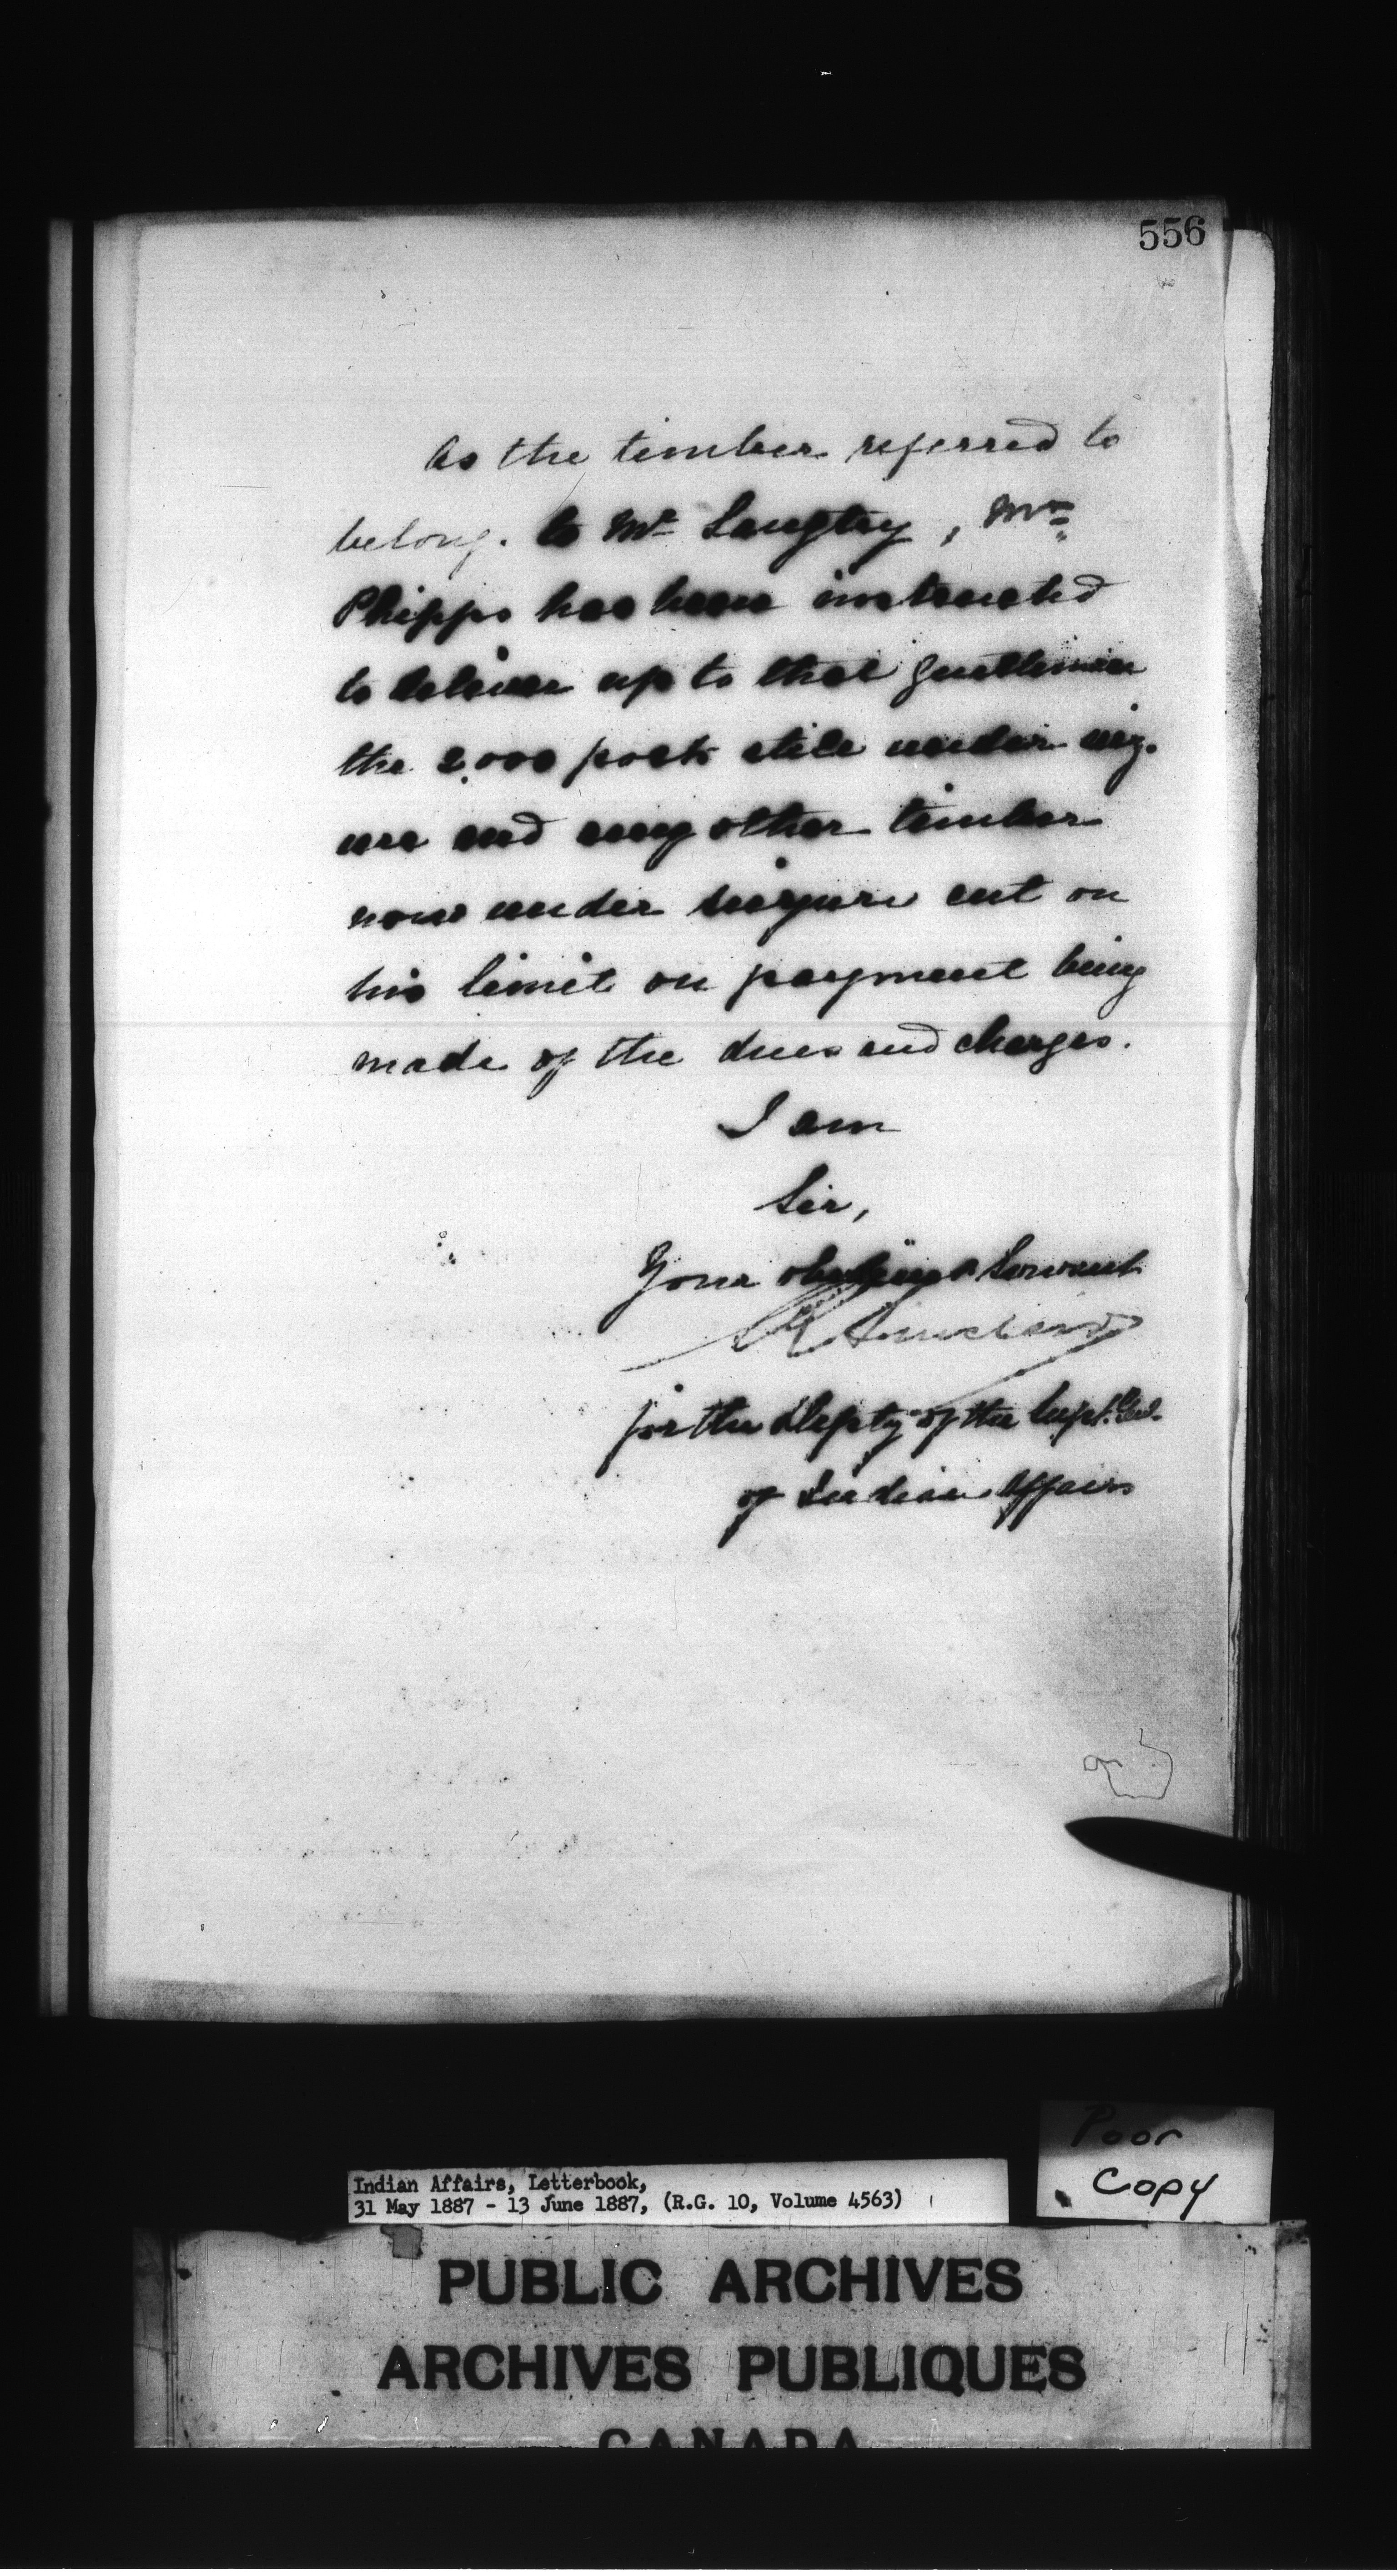 556
As the timber referred to
belong. to Mr Langtry, Mr
Phipps has been instructed
to deliver up to that gentleman
the 2,000 posts still under seiz-
ure and any other timber
now under seizure cut on
his limit on payment being
made of the dues and charges.
I am
Sir,
Your obedient Servant
for the Depty of the Supt. Genl.
of Indian Affairs
Poor
Copy
Indian Affairs, Letterbook,
31 May 1887 - 13 June 1887, (R.G. 10, Volume 4563)
PUBLIC ARCHIVES
ARCHIVES PUBLIQUES
CANADA